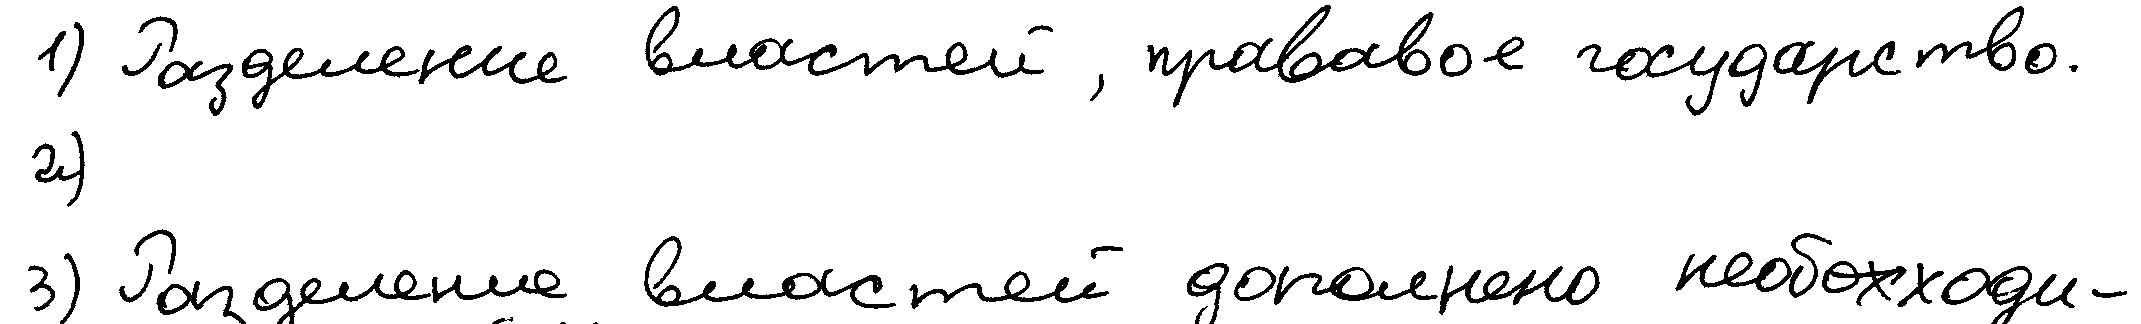 1) Разделение властей, прававое государство.
2)
3) Разделение властей дополнено необхходи-